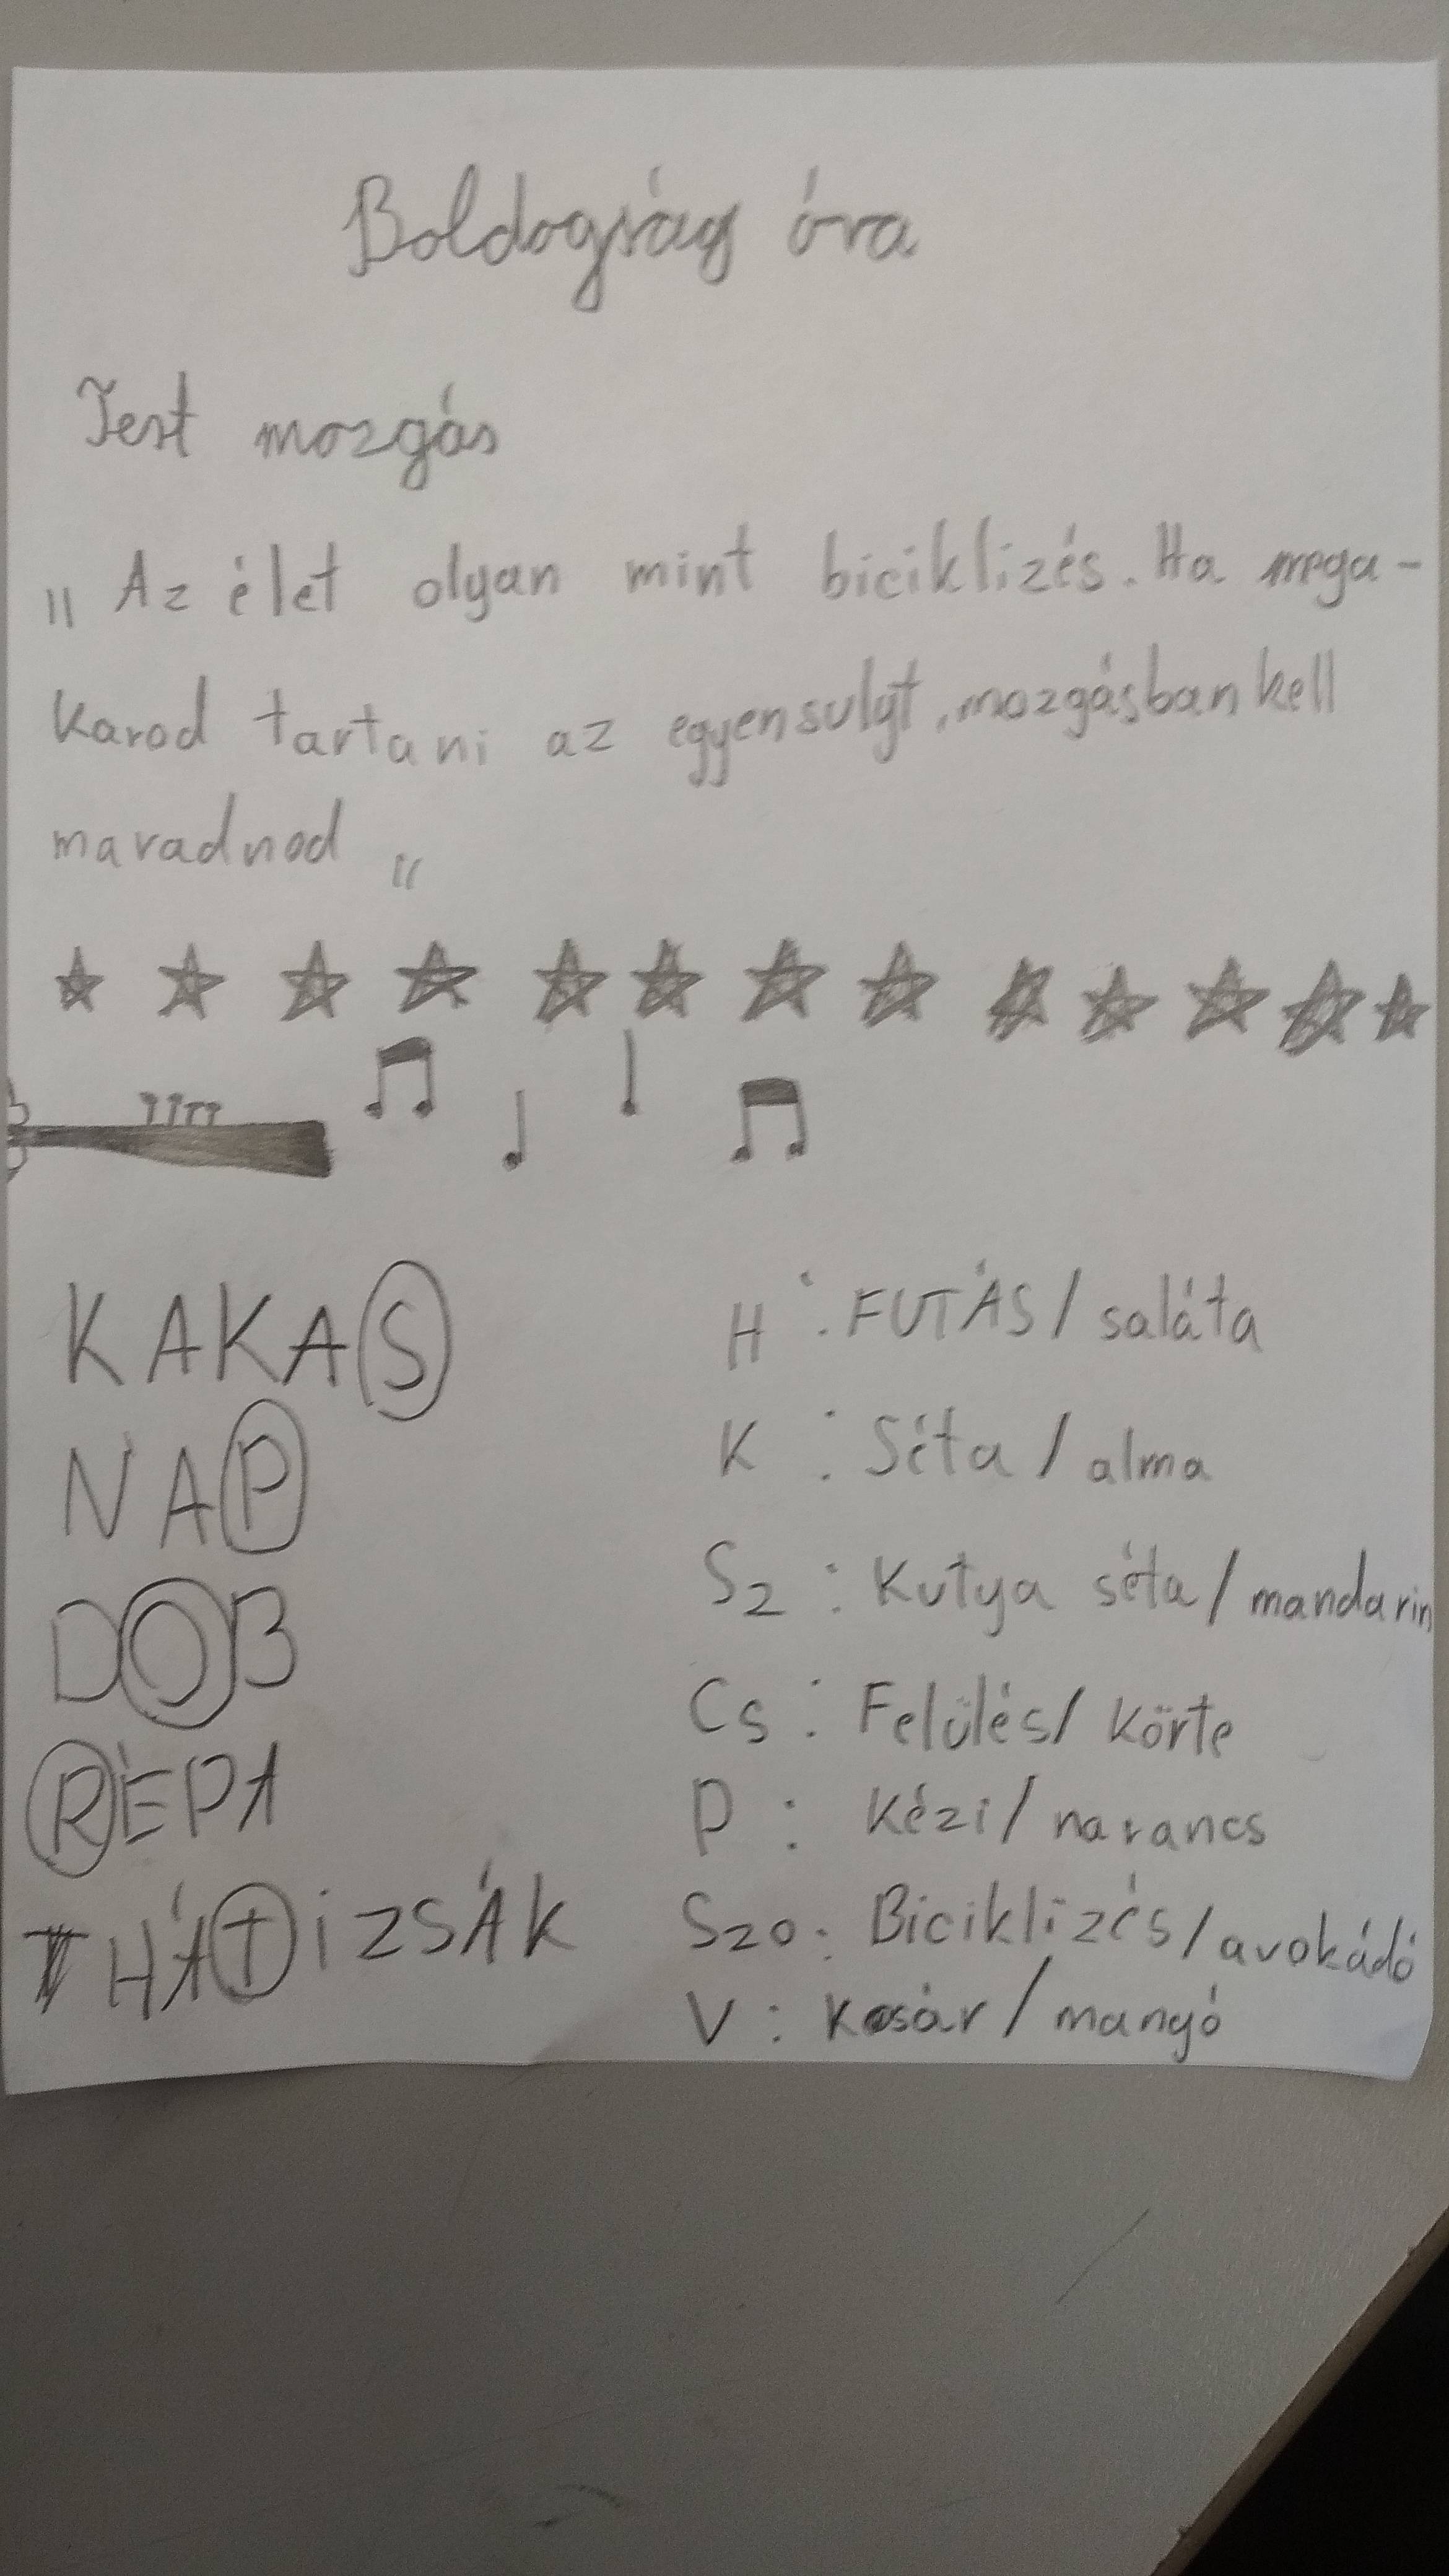 Boldogság óra
Test mozgás
" Az élet olyan mint biciklizés. Ha mega-
karod tartani az egyensulyt, mozgásban kell
maradnod "
KAKAS
NAP
DOB
RÉPA
HÁTiZSÁK
H : FUTÁS / saláta
K : Séta / alma
Sz : Kutya séta / mandarin
Cs : Felülés / körte
P : Kézi / narancs
Szo : Biciklizés / avokádó
V : Kosár / mangó